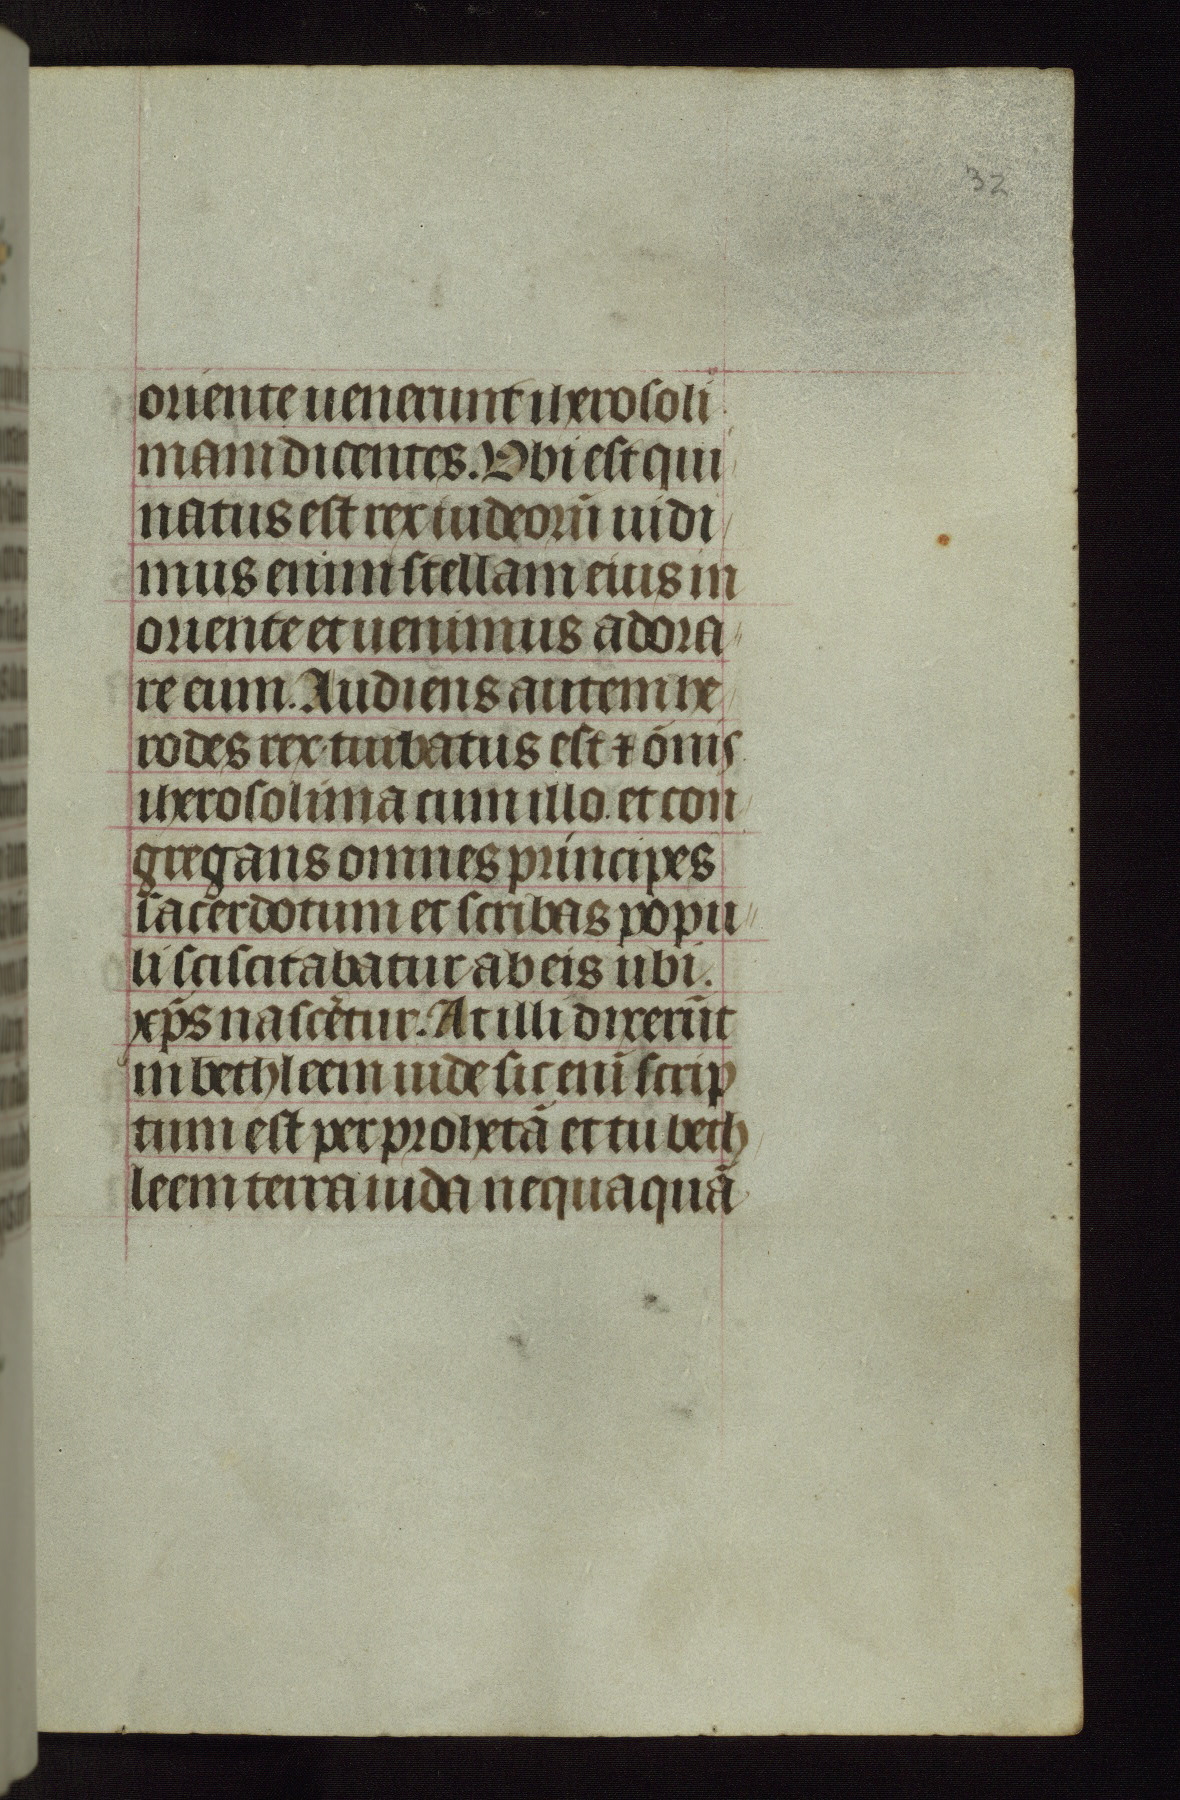 32
oriente uenerunt iherosoli
mam dicentes. Vbi est qui
natus est rex iudeorū uidi
mus enim stellam eius in
oriente et uenimus adora
re eum. Audiens autem he
rodes rex turbatus est ⁊ ōnis
iherosolima cum illo. et con
gregans omnes principes
sacerdotum et scribas popu
li sciscitabatur ab eis ubi.
xp̄s nascētur. At illi dixerūt
in bethleem iude sic enī scrip
tum est per prohetā et tu beth
leem terra iuda nequaquā